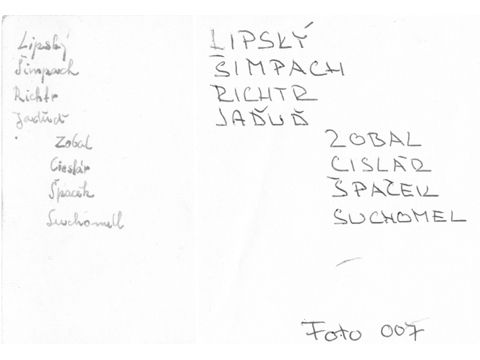 Lipský
Šimpach
Richtr
Jaďuď
Zobal
Cieslár
Špaček
Suchomell
LIPSKÝ
ŠIMPACH
RICHTR
JAĎUĎ
ZOBAL
CISLÁR
ŠPAČEK
SUCHOMEL
Foto 007